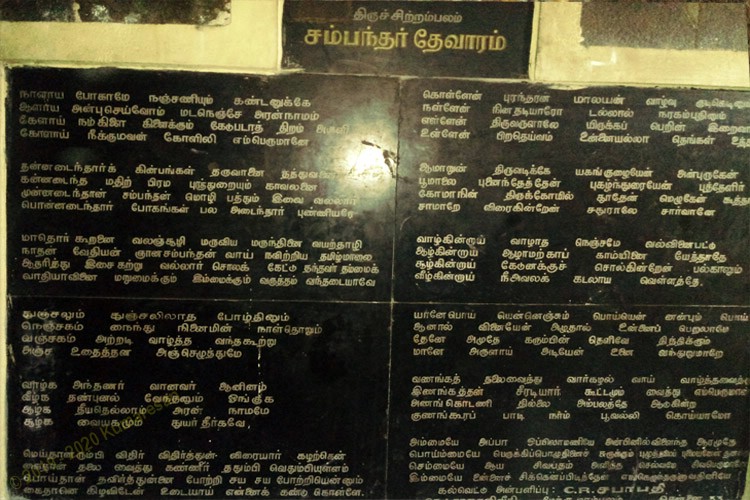 திருச்சிற்றம்பலம்
சம்பந்தர் தேவாரம்
நாளாய போகாமே நஞ்சணியும் கண்டனுக்கே
ஆளாய அன்புசெய்வோம் மடநெஞ்சே அரன்நாமம்
கேளாய் நம் கிளை கிளைக்கும் கேடுபடாத் திறம் அருளி
கோளாய் நீக்குமவன் கோளிலி எம்பெருமானே
தன்னடைந்தார்க் கின்பங்கள் தருவானை தத்துவனை
கன்னடைந்த மதிற் பிரம புரத்துறையும் காவலனை
முன்னடைந்தான் சம்பந்தன் மொழி பத்தும் இவை வல்லார்
பொன்னடைந்தார் போகங்கள் பல அடைந்தார் புண்ணியரே
மாதொர் கூறனை வலஞ்சுழி மருவிய மருந்தினை வயற்காழி
நாதன் வேதியன் ஞானசம்பந்தன் வாய் நவிற்றிய தமிழ்மாலை
ஆதரித்து இசை கற்று வல்லார் சொலக் கேட்டு தந்தவர் தம்மைக்
வாதியாவினை மறுமைக்கும் இம்மைக்கும் வருத்தம் வந்தடையாவே
துஞ்சலும் துஞ்சலிலாத போழ்தினும்
நெஞ்சகம் நைந்து நினைமின் நாள்தொறும்
வஞ்சகம் அற்றடி வாழ்த்த வந்தகூற்று
அஞ்ச உதைத்தன அஞ்செழுத்துமே
வாழ்க அந்தணர் வானவர் ஆவினம்
வீழ்க தண்புனல் வேந்தனும் ஓங்குக
ஆழ்க தீயதெல்லாம் அரன் நாமமே
சூழ்க வையகமும் துயர் தீர்கவே.
மெய்தான் அரும்பி விதிர் விதிர்த்துன் விரையார் கழற்கென்
கைதான் தலை வைத்து கண்ணீர் ததும்பி வெதும்பியுள்ளம்
பொய்தான் தவிர்த்துன்னை போற்றி சய சய போற்றியென்னும்
கைதானை கிழவிடேன் உடையாய் என்னைக் கண்டு கொள்ளே.
கொள்ளேன் புரந்தரன் மாலயன் வாழ்வு குடிகெடினும்
நள்ளேன் நினதடியாரோ டல்லால் நரகம்புகினும்
எள்ளேன் திருவருளாலே யிருக்கப் பெறின் இறைவா
உள்ளேன் பிறதெய்வம் உன்னையல்லா தெங்கள் உத்
ஆமாறுன் திருவடிக்கே யகங்குழையேன் அன்புருகேன்
பூமாலை புனைந்தேத்தேன் புகழ்ந்துரையேன் புத்தேளிர்
கோமானின் திறக்கோயில் தூகேன் மெழுகேன் கூத்
சாமாறே விரைகின்றேன் சதுராலே சார்வானே
வாழ்கின்றாய் வாழாத நெஞ்சமே வல்வினைப்பட்டு
ஆழ்கின்றாய் ஆழாமற் காப் காயினை யேத்தாதே
சூழ்கின்றாய் கேடுனக்குச் சொல்கின்றேன் பல்காலும்
வீழ்கின்றாய் நீஅவலக் கடலாய வெள்ளத்தே.
யானேபொய் யென்னெஞ்சும் பொய்யென் னன்பும் பொய்
ஆனால் வினையேன் அழுதால் உன்னைப் பெறலாமே
தேனே அமுதே கரும்பின் தெளிவே தித்திக்கும்
மானே அருளாய் அடியேன் உனை வந்துறுமாறே
வணங்கத் தலைவைத்து வார்கழல் வாய் வாழ்த்தவைத்து
இணங்கத்தன் சீரடியார் கூட்டமும் வைத்து எம்பெருமான்
அணங் கொடணி தில்லை அம்பலத்தே ஆடுகின்ற
குணங்கூரப் பாடி நாம் பூவல்லி கொய்யாமோ
அம்மையே அப்பா ஒப்பிலாமணியே அன்பினில்விளைந்த ஆரமுதே
பொய்ம்மையே பெருக்கிப்பொழுதினைச் சுருக்கும் புழுத்தலைப் புலையனேன்
செம்மையே ஆய சிவபதம் அளித்த செல்வமே சிவபெருமானே
இம்மையே உன்னைச் சிக்கெனப்பிடித்தேன் எங்கெழுந்தருளுவதினியே
கல்வெட்டு அன்பளிப்பு: C.R. சபாபதி